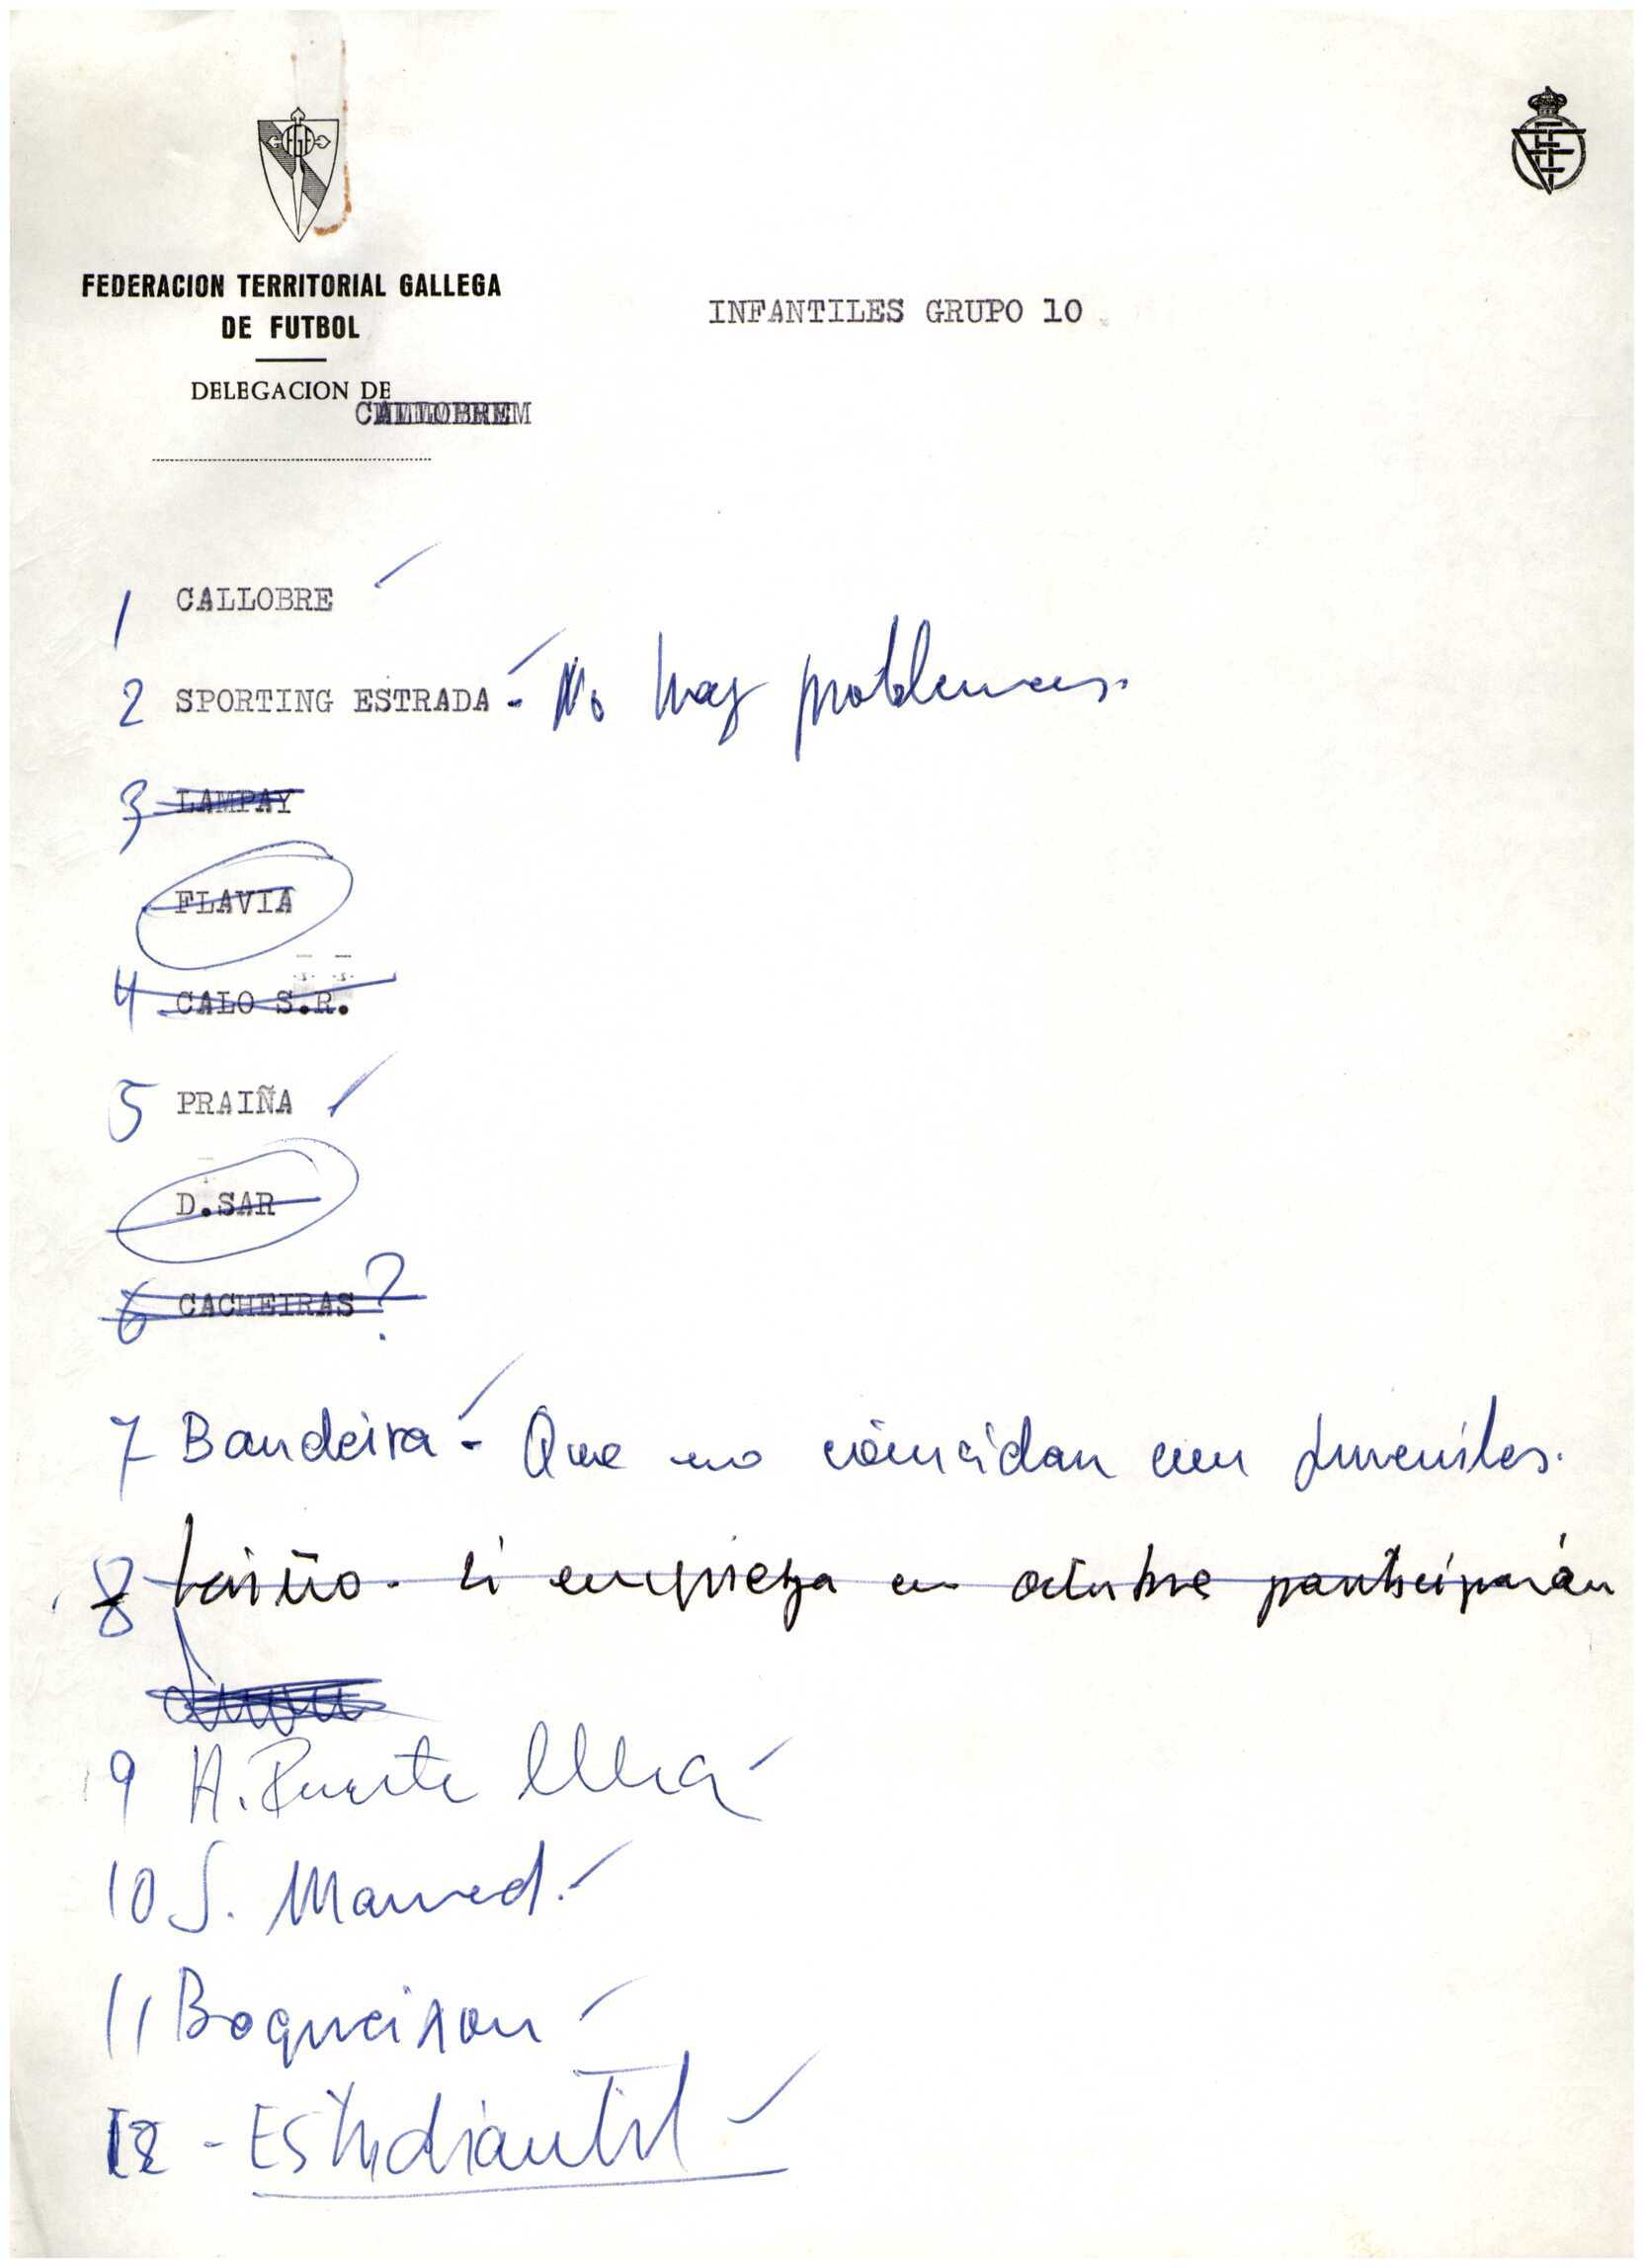 FEDERACION TERRITORIAL GALLEGA
DE FUTBOL
INFANTILES GRUPO 10
DELEGACION DE
1 CALLOBRE
2 SPORTING ESTRADA - No hay problemas.
3 LAMPAY
FLAVIA
4 CALO S.R.
5 PRAIÑA
D.SAR
6 CACHEIRAS ?
7 Bandeira - Que no coincidan con Juveniles.
8 - Si empieza en octubre participarán
9 A. Puente Ulla
10 S. Mamed.
11 Boqueixon
12 - Estudiantil